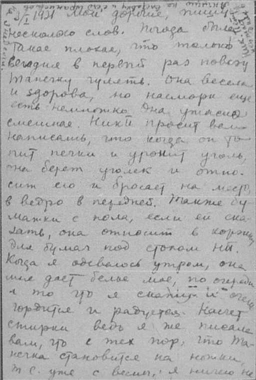 5/I 1931 Мои дорогие, пишу
несколько слов. Погода была
такая плохая, что только
сегодня в первый раз повезу
Танечку гулять. Она весела
и здорова, но насморк еще
есть немножко. Она ужасно
смешная. Ника просит вам
написать, что когда он то-
пит печки и уронит уголь,
она берет уголек и отно-
сит его и бросает на место,
в ведро в передней. Также бу-
мажки с пола, если ей ска-
зать, она относит в корзинку
для бумаг под столом Ни.
Когда я одеваюсь утром, она
мне дает белье мое, по очереди
и то что я скажу и очень
гордится и радуется. Насчет
стирки ведь я же писала
вам, что с тех пор, что Та-
нечка становится на ножки,
т.е. уже с весны, я ничего не